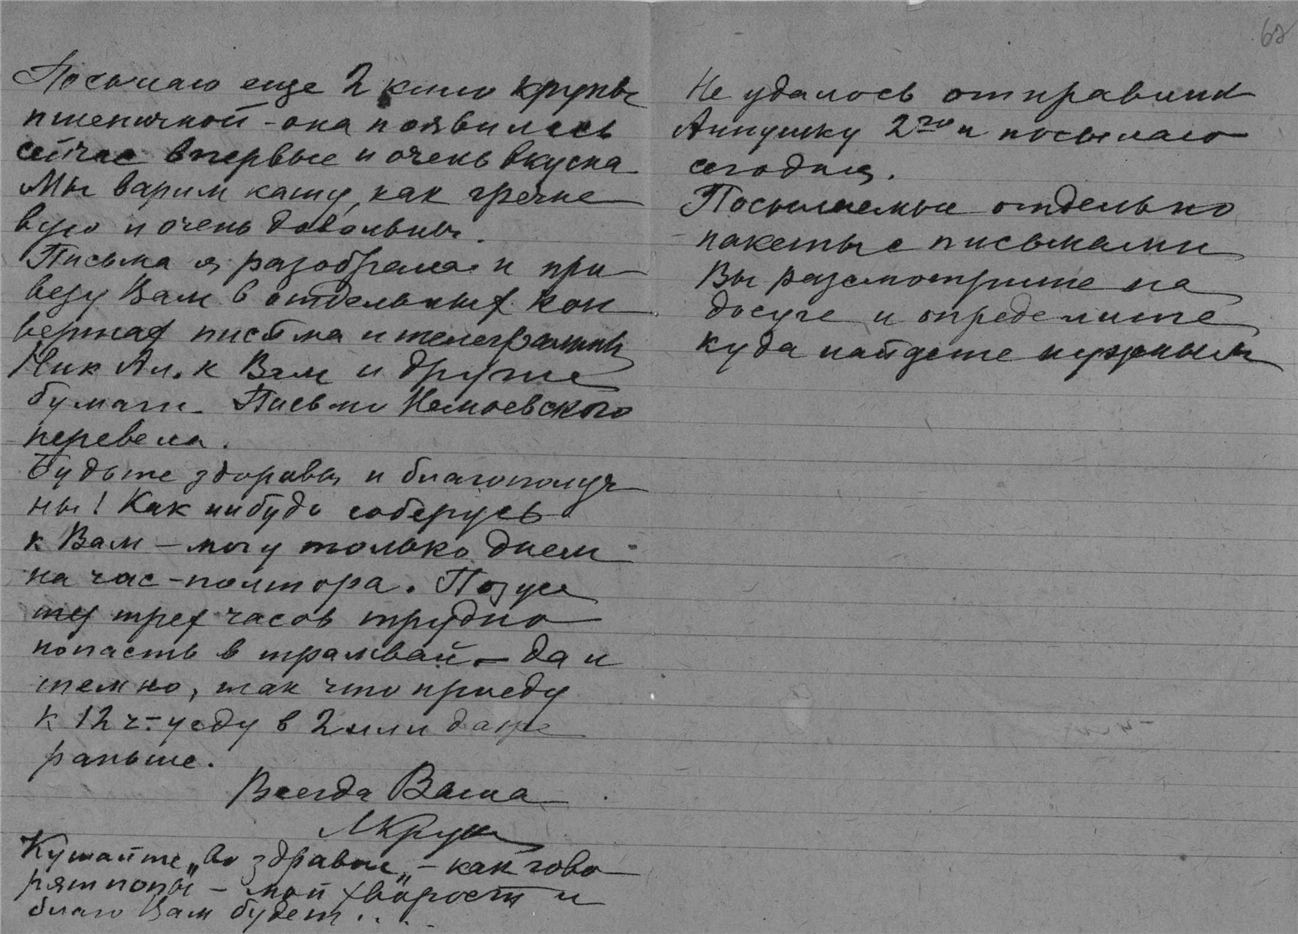 Посылаю еще 2 кило крупы
пшеничной – она появилась
сейчас впервые и очень вкусна
Мы варим кашу, как гречне
вую и очень довольны.
Письма я разобрала и при
везу Вам в отдельных кон
вертах письма и телеграммы
Ник Ал. к Вам и другие
бумаги. Письмо Немоевского
перевела.
Будьте здоровы и благополуч
ны! Как нибудь соберусь
к Вам – могу только днем
на час – полтора. Позже
трех часов трудно
попасть в трамвай – да и
темно, так что приеду
к 12 ч – уеду в 2 или даже
раньше.
Всегда Ваша
МКрук
Кушайте „во здравие„ – как гово
рят попы – мой хворост и
благо Вам будет...
62
Не удалось отправить
Аннушку 2го и посылаю
сегодня.
Посылаемые отдельно
пакеты с письмами
Вы рассмотрите на
досуге и определите
куда найдете нужным